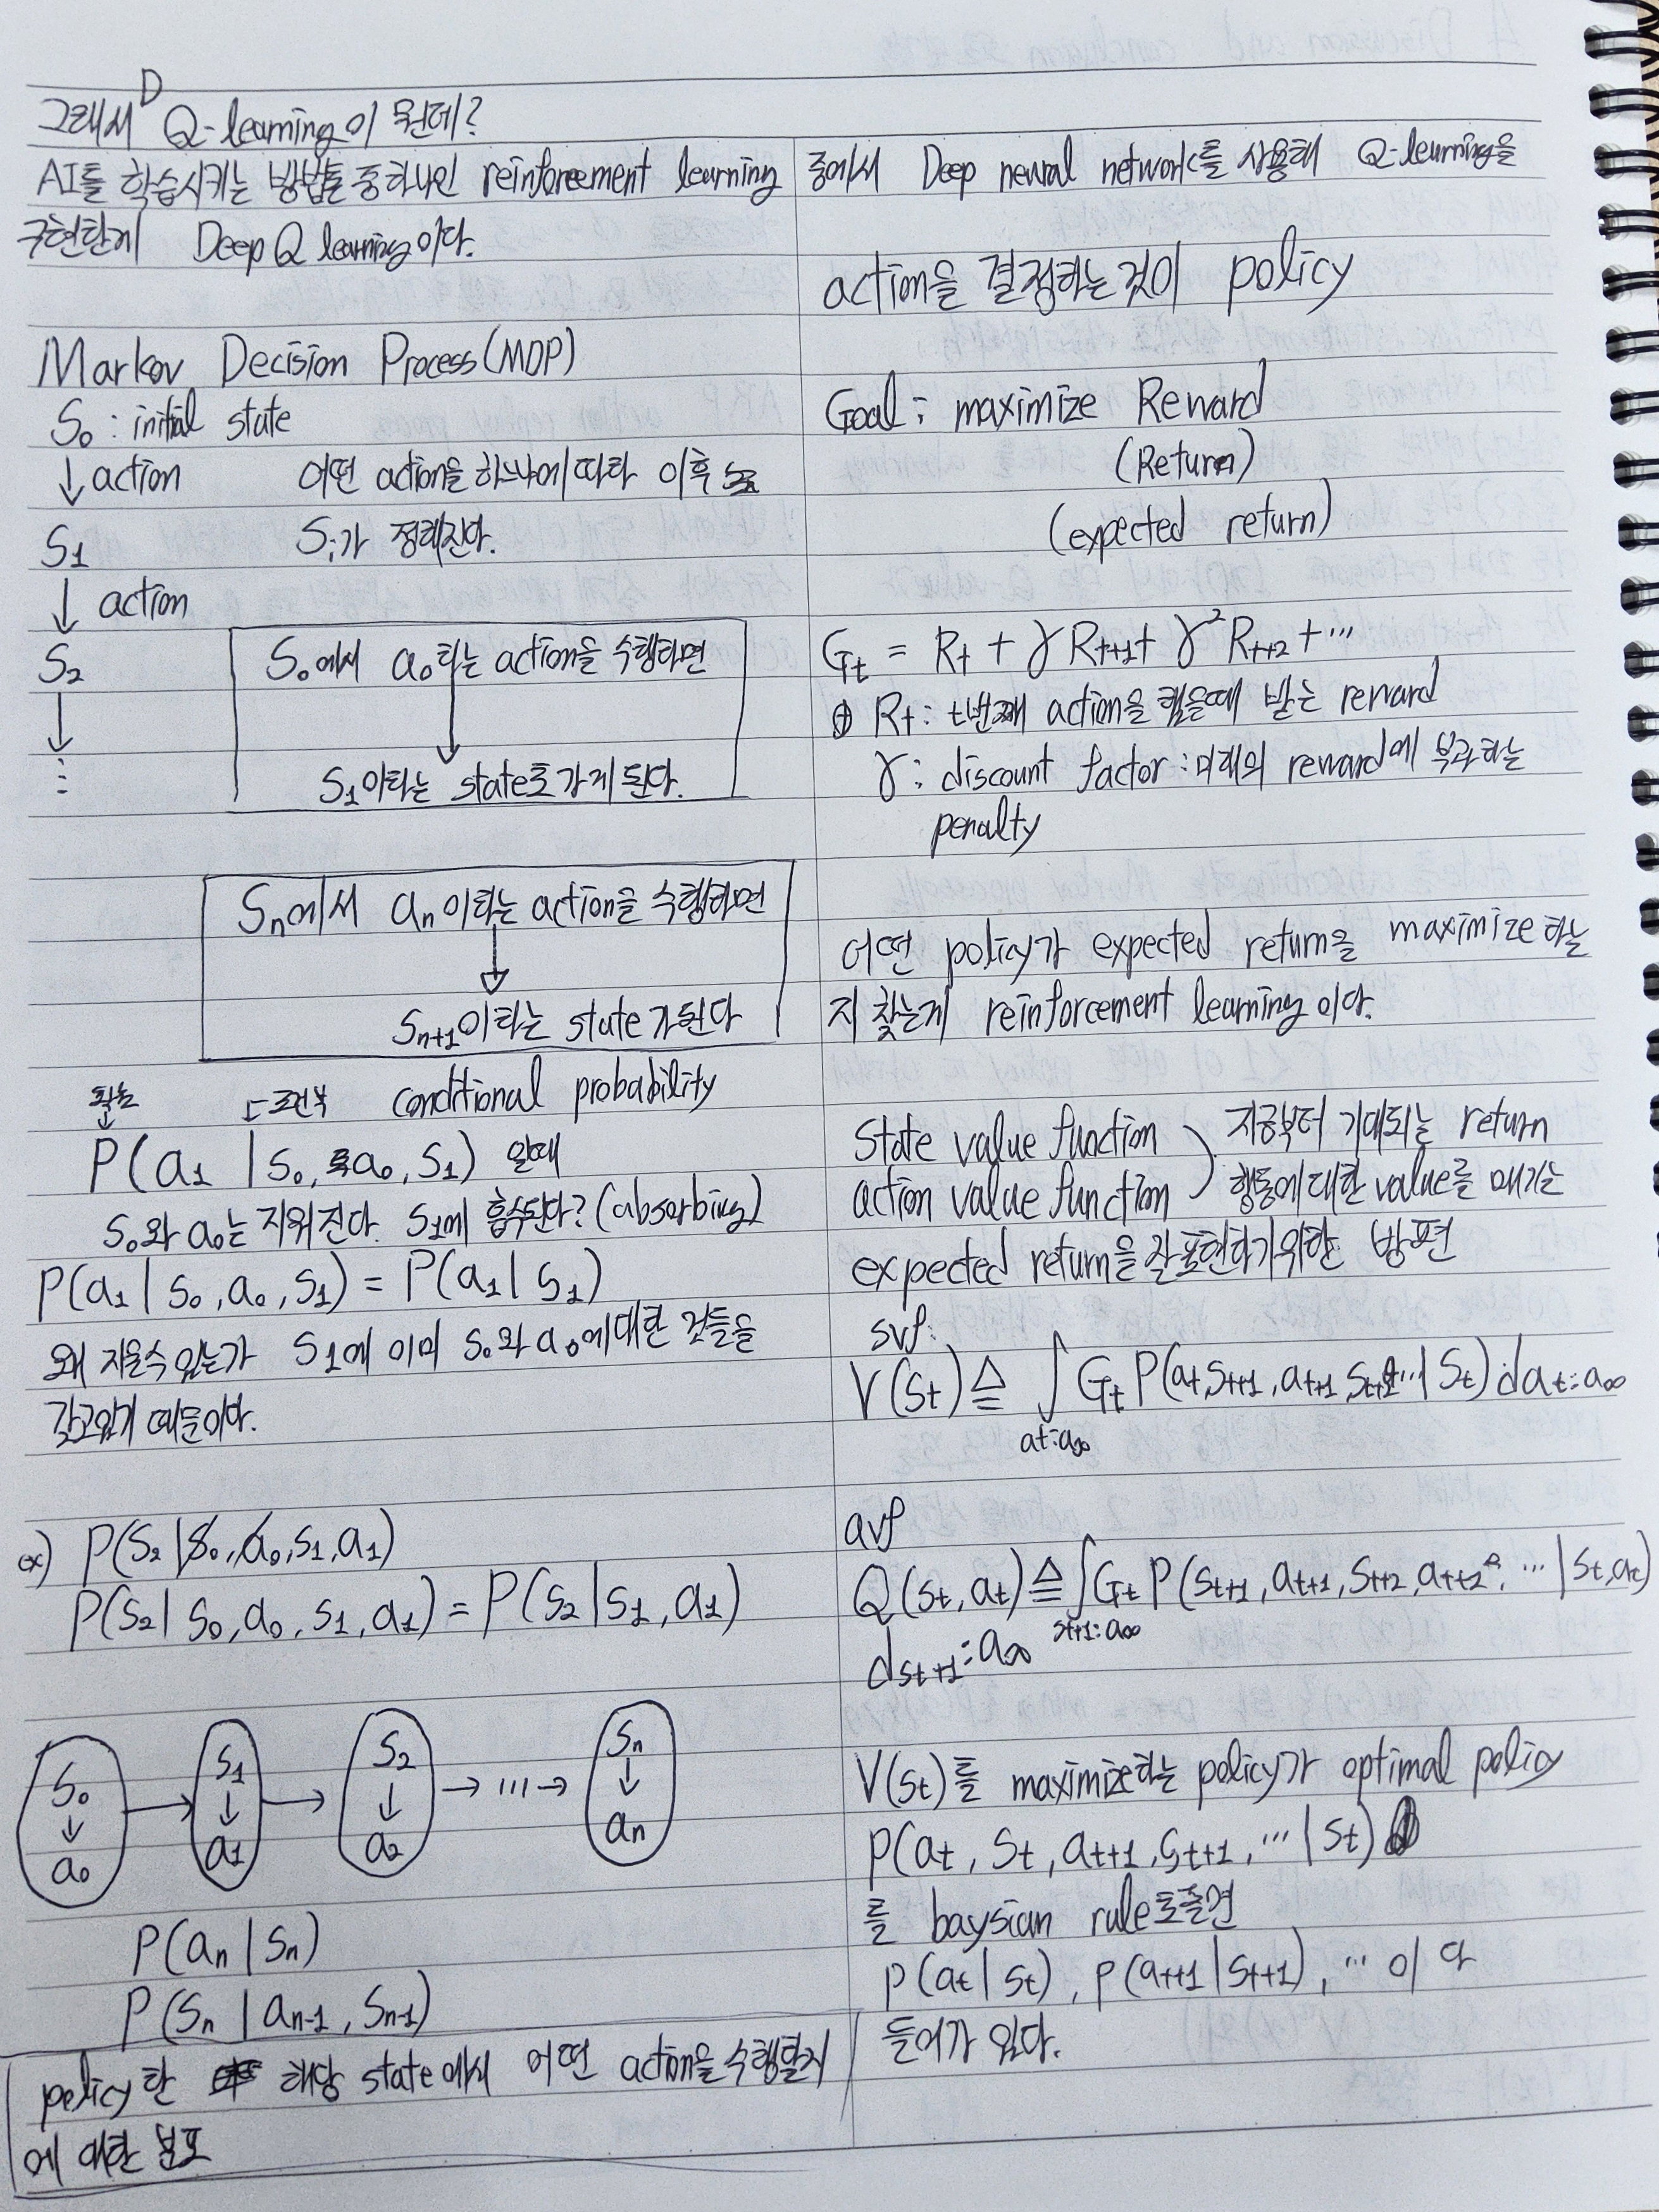 그래서 D Q-learning이 뭔데?
AI를 학습시키는 방법들 중 하나인 reinforcement learning 중에서 Deep neural network를 사용해 Q-learning을
구현한게 Deep Q learning이다.
Markov Decision Process(MDP)
S₀ : initial state
↓ action 어떤 action을 하느냐에 따라 이후
S₁ Sᵢ가 정해진다.
↓ action
S₂
↓
⋮
S₀에서 a₀라는 action을 수행하면
↓
S₁이라는 state로 가게 된다.
Sₙ에서 aₙ이라는 action을 수행하면
↓
Sₙ₊₁이라는 state가 된다
확률 조건부 conditional probability
P(a₁ | s₀, a₀, s₁) 일때
s₀와 a₀는 지워진다. s₁에 흡수된다? (absorbing)
P(a₁ | s₀, a₀, s₁) = P(a₁ | s₁)
왜 지울수 있는가 s₁에 이미 s₀와 a₀에 대한 것들을
갖고있기 때문이다.
ex) P(s₂ | s₀, a₀, s₁, a₁)
P(s₂ | s₀, a₀, s₁, a₁) = P(s₂ | s₁, a₁)
s₀ s₁ s₂ sₙ
↓ → ↓ → ↓ → ⋯ → ↓
a₀ a₁ a₂ aₙ
P(aₙ | sₙ)
P(sₙ | aₙ₋₁, sₙ₋₁)
policy란 해당 state에서 어떤 action을 수행할지
에 대한 분포
action을 결정하는것이 policy
Goal : maximize Reward
(Return)
(expected return)
Gₜ = Rₜ + γRₜ₊₁ + γ²Rₜ₊₂ + ⋯
Rₜ : t번째 action을 했을때 받는 reward
γ : discount factor : 미래의 reward에 부과하는
penalty
어떤 policy가 expected return을 maximize 하는
지 찾는게 reinforcement learning이다.
State value function ) 지금부터 기대되는 return
action value function ) 행동에 대한 value를 매기는
expected return을 잘 표현하기 위한 방편
svf:
V(sₜ) ≜ ∫ Gₜ P(aₜ, sₜ₊₁, aₜ₊₁, sₜ₊₂, ⋯ | sₜ) daₜ:a∞
aₜ:a∞
avf
Q(sₜ, aₜ) ≜ ∫ Gₜ P(sₜ₊₁, aₜ₊₁, sₜ₊₂, aₜ₊₂, ⋯ | sₜ, aₜ)
dsₜ₊₁:a∞ sₜ₊₁:a∞
V(sₜ)를 maximize하는 policy가 optimal policy
P(aₜ, sₜ, aₜ₊₁, sₜ₊₁, ⋯ | sₜ)
를 baysian rule로 풀면
P(aₜ | sₜ), P(aₜ₊₁ | sₜ₊₁), ⋯ 이 다
들어가 있다.